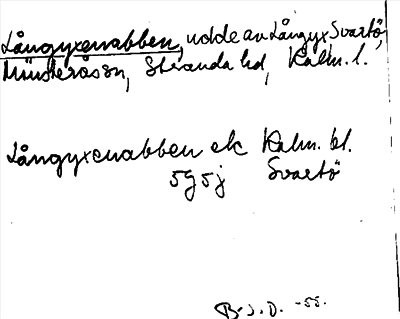 Långyxenabben, udde av Långyx, Svartö,
Mönsterås sn, Stranda hd, Kalm. l.
Långyxenabben ek Kalm. bl.
5g5j Svartö
B.J.D. -55.